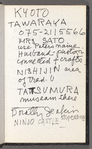 KYOTO
TAWARAYA
075-211-5566
MRS. SATO
use Peter's name
Husband potter
connected & crafts
NISHIJIN area
of trad.
TATSUMURA
museum there
Dorothy
NINJO CASTLE